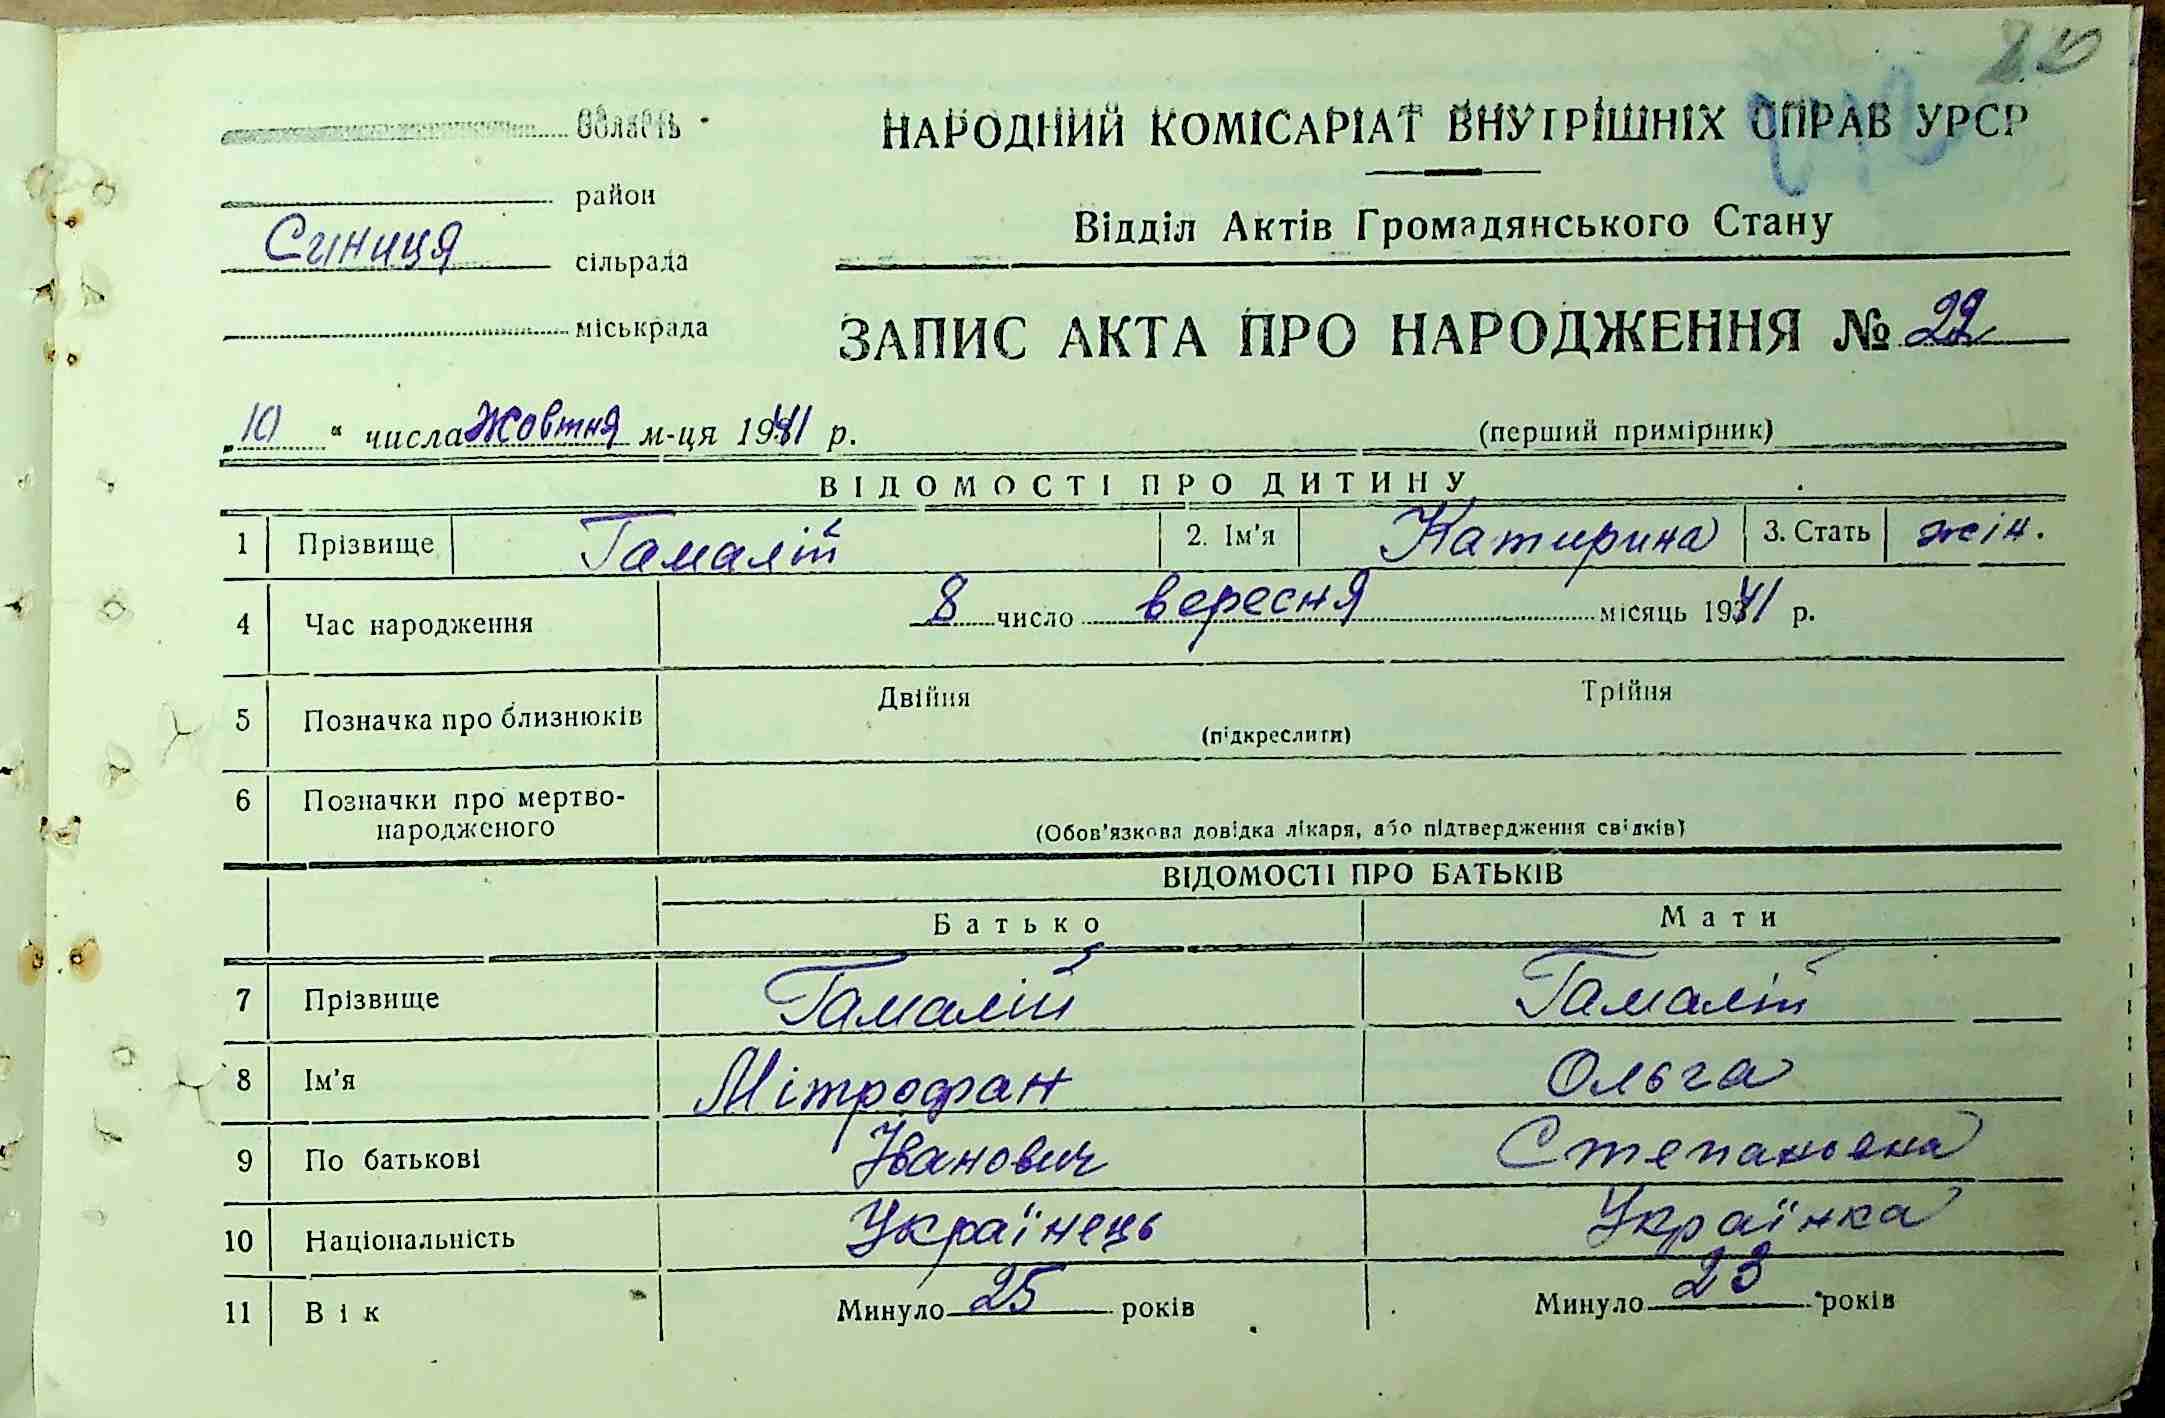 Область
НАРОДНИЙ КОМІСАРІАТ ВНУТРІШНІХ СПРАВ УРСР
район
Відділ Актів Громадянського Стану
Синиця сільрада
міськрада
ЗАПИС АКТА ПРО НАРОДЖЕННЯ № 22
„10“ числа Жовтня м-ця 1941 р.
(перший примірник)
ВІДОМОСТІ ПРО ДИТИНУ
1 Прізвище Гамалій 2. Ім'я Катирина 3. Стать жін.
4 Час народження 8 число вересня місяць 1941 р.
5 Позначка про близнюків Двійня Трійня
(підкреслити)
6 Позначки про мертво-
народженого
(Обов'язкова довідка лікаря, або підтвердження свідків)
ВІДОМОСТІ ПРО БАТЬКІВ
Батько Мати
7 Прізвище Гамалій Гамалій
8 Ім'я Мітрофан Ольга
9 По батькові Іванович Степановна
10 Національність Українець Українка
11 Вік Минуло 25 років Минуло 23 років